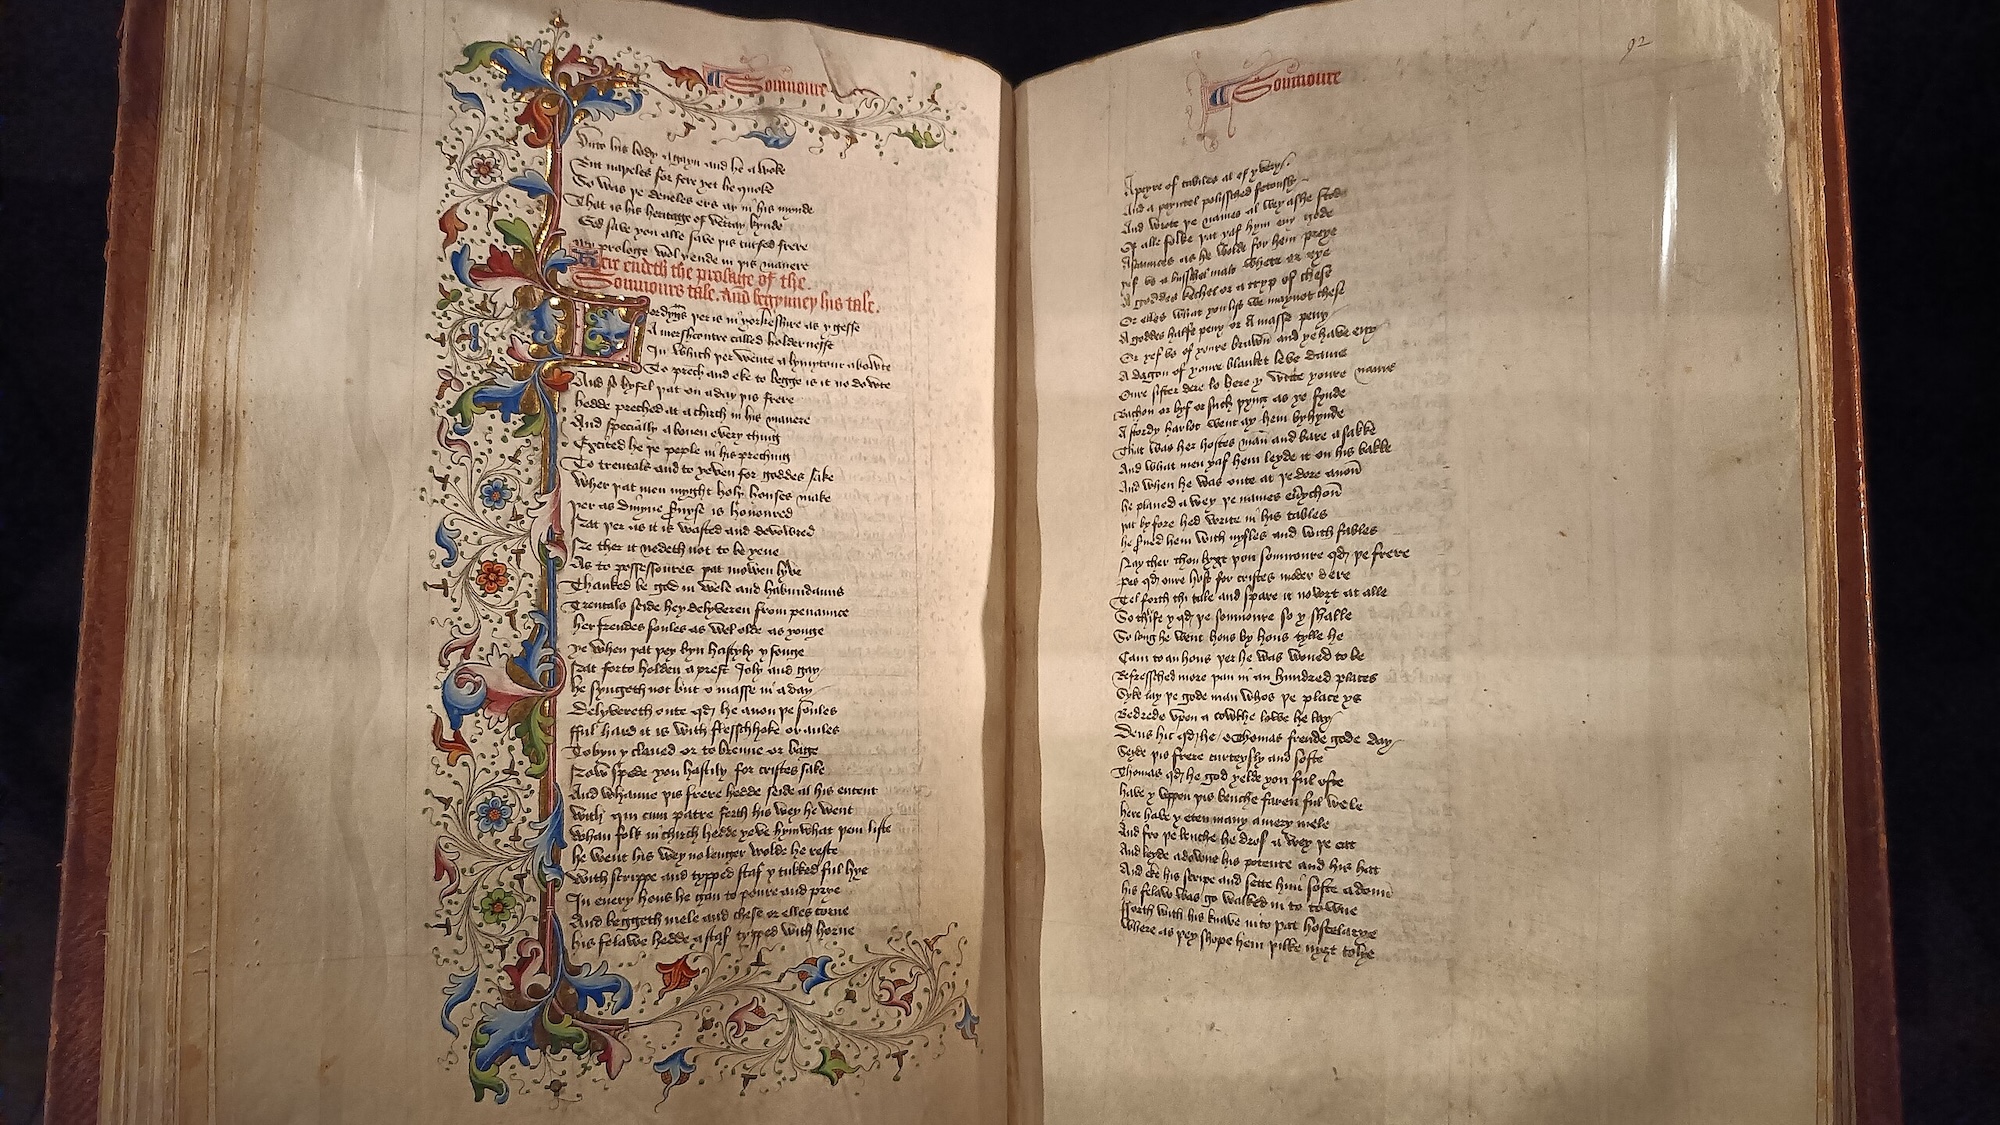 Somnoure
Unto his body agayn and he awoke
But napeles for fere yet he quoke
So was þe deueles ers ay in his mynde
That is his heritage of verray kynde
God save you alle save þis cursed frere
My prologe wol y ende in þis manere
Here endeth the prologe of the
Somnours tale. And begynneþ his tale.
ordyngs þer is in yorkesshire as y gesse
A mersh contre called holdernesse
In which þer wente a lymytour abowte
To prech and eke to begge is it no dowte
And so byfel þat on a day þis frere
hedde preched at a chirch in his manere
And specially aboven every thing
Excited he þe peple in his preching
To trentals and to yeven for goddes sake
Wher þat men myght holy houses make
þer as divyne servyse is honoured
Nat þer as it is wasted and devowred
Ne ther it nedeth not to be yeve
As to possessoures þat mowen lyve
Thanked be god in wele and habundauns
Trentals seide he delyveren from penaunce
her frendes soules as wel olde as yonge
ye when þat þey byn hastyly y songe
Nat forto holden a prest Joly and gay
he syngeth not but o masse in a day
Delyvereth oute qd he anon þe soules
fful hard it is with flesshhoke or aules
To byn y clawed or to brenne or bage
Now spede you hastily for cristes sake
And whanne þis frere hedde seide al his entent
With qui cum patre forth his wey he went
Whan folk in chirch hedde yeve hym what þem liste
he went his wey no lenger wolde he reste
With scrippe and typped staf y tukked ful hye
In every hous he gan to poure and prye
And beggeth mele and chese or elles corne
his felawe hedde a staf typped with horne
92
Somnoure
A peyre of tables al of yvery
And a poyntel polisshed fetously
And wrote þe names alwey as he stode
Of alle folke þat yaf hym eny gode
Ascaunces as he wolde for hem preye
yef vs a busshel malt whete or rye
A goddes kechel or a tryp of chese
Or elles what you lis we may not chese
A goddes halfe peny or A masse peny
Or yef vs of youre brawn and ye have eny
A dagon of youre blanket leve dame
Oure suster dere lo here y write youre name
Bachon or byf or such þyng as ye fynde
A stordy harlot went ay hem byhynde
That was her hostes man and bare a sakke
And what men yaf hem leyde it on his bakke
And when he was oute at þe dore anon
he planed a wey þe names euerychon
þat byfore hed write in his tables
he serued hem with nyfles and with fables
Nay ther thou lyxt þou somnoure qd þe frere
Pes qd oure host for cristes moder dere
Tel forth thi tale and spare it nowzt at alle
So thrife y qd þe somnoure so y shalle
So long he went hous by hous tylle he
Cam to an hous þer he was woned to be
Refresshed more þan in an hundred places
Syk lay þe gode man whos þe place ys
Bedrede vpon a cowche lowe he lay
Deus hic qd he o Thomas frende gode day
Seyde þis frere curteysly and softe
Thomas qd he god yelde you ful ofte
have y vppon þis benche faren ful wele
here have y eten many a mery mele
And fro þe benche he drof a wey þe cat
And leyde adowne his potente and his hat
And eke his scripe and sette him softe adoun
his felaw was go walked in to towne
fforth with his knave into þat hostelarye
Where as þey shope hem þilke nyzt to lye